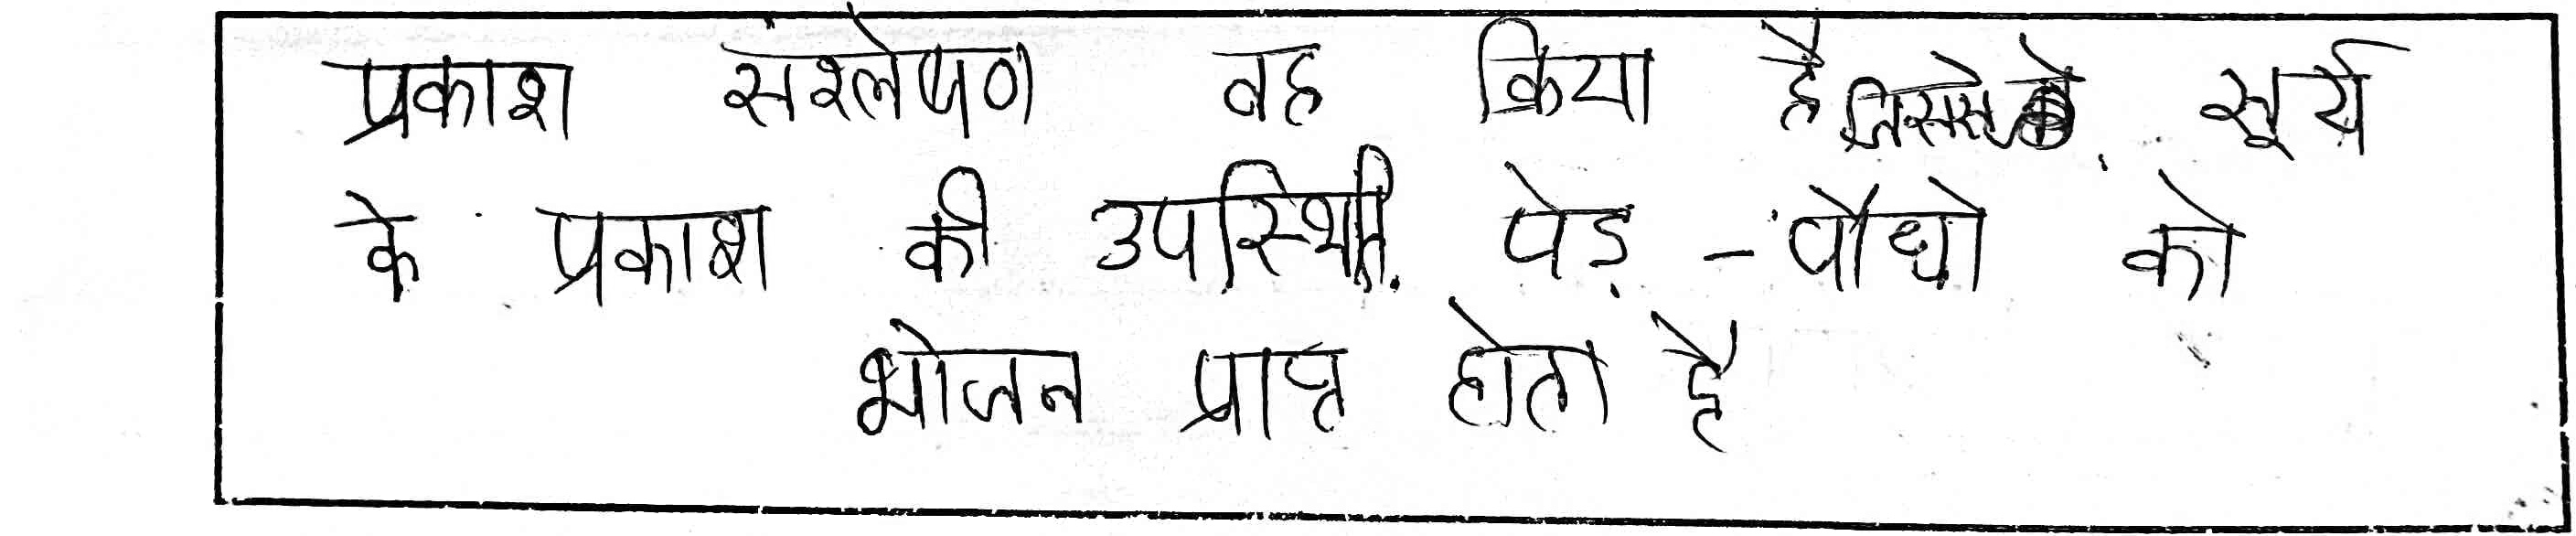 प्रकाश संश्लेषण वह क्रिया है जिससे सूर्य
के प्रकाश की उपस्थिति पेड़ - पौधो को
भोजन प्राप्त होता है